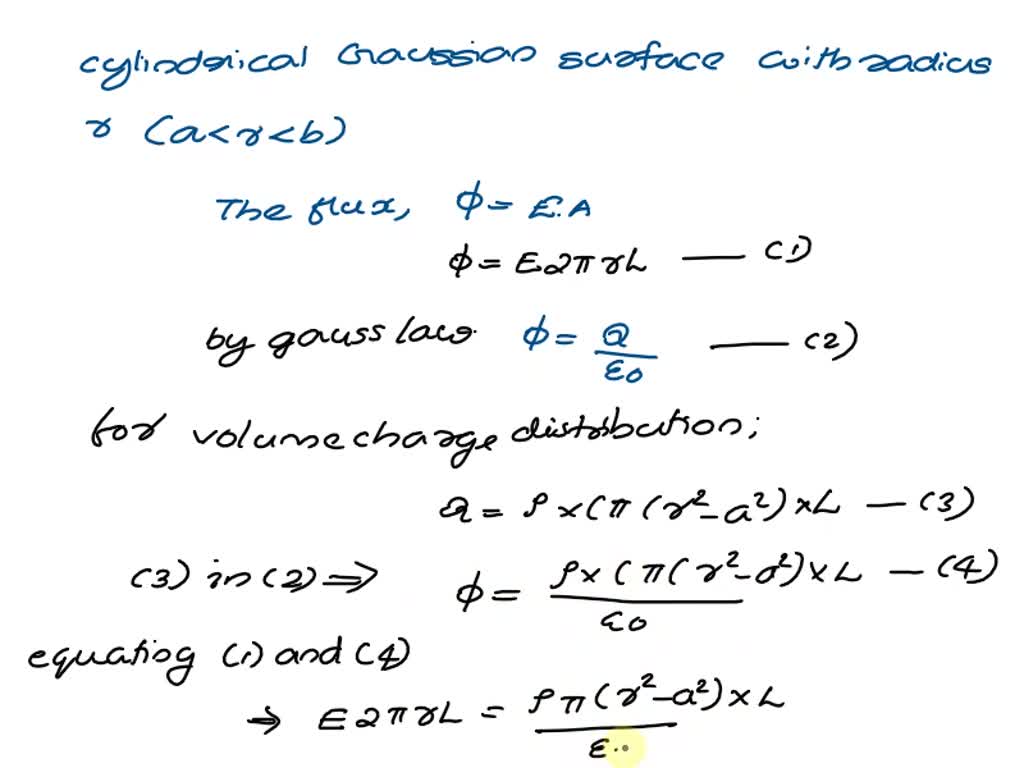 cylindrical Gaussian surface with radius
r (a<r<b)
The flux, ϕ = E.A
ϕ = E2πrL — (1)
by gauss law ϕ = Q/ε0 — (2)
for volume charge distribution;
Q = ρ×(π(r²-a²)×L — (3)
(3) in (2) ⇒ ϕ = ρ×(π(r²-a²)×L/ε0 — (4)
equating (1) and (4)
⇒ E2πrL = ρπ(r²-a²)×L/ε